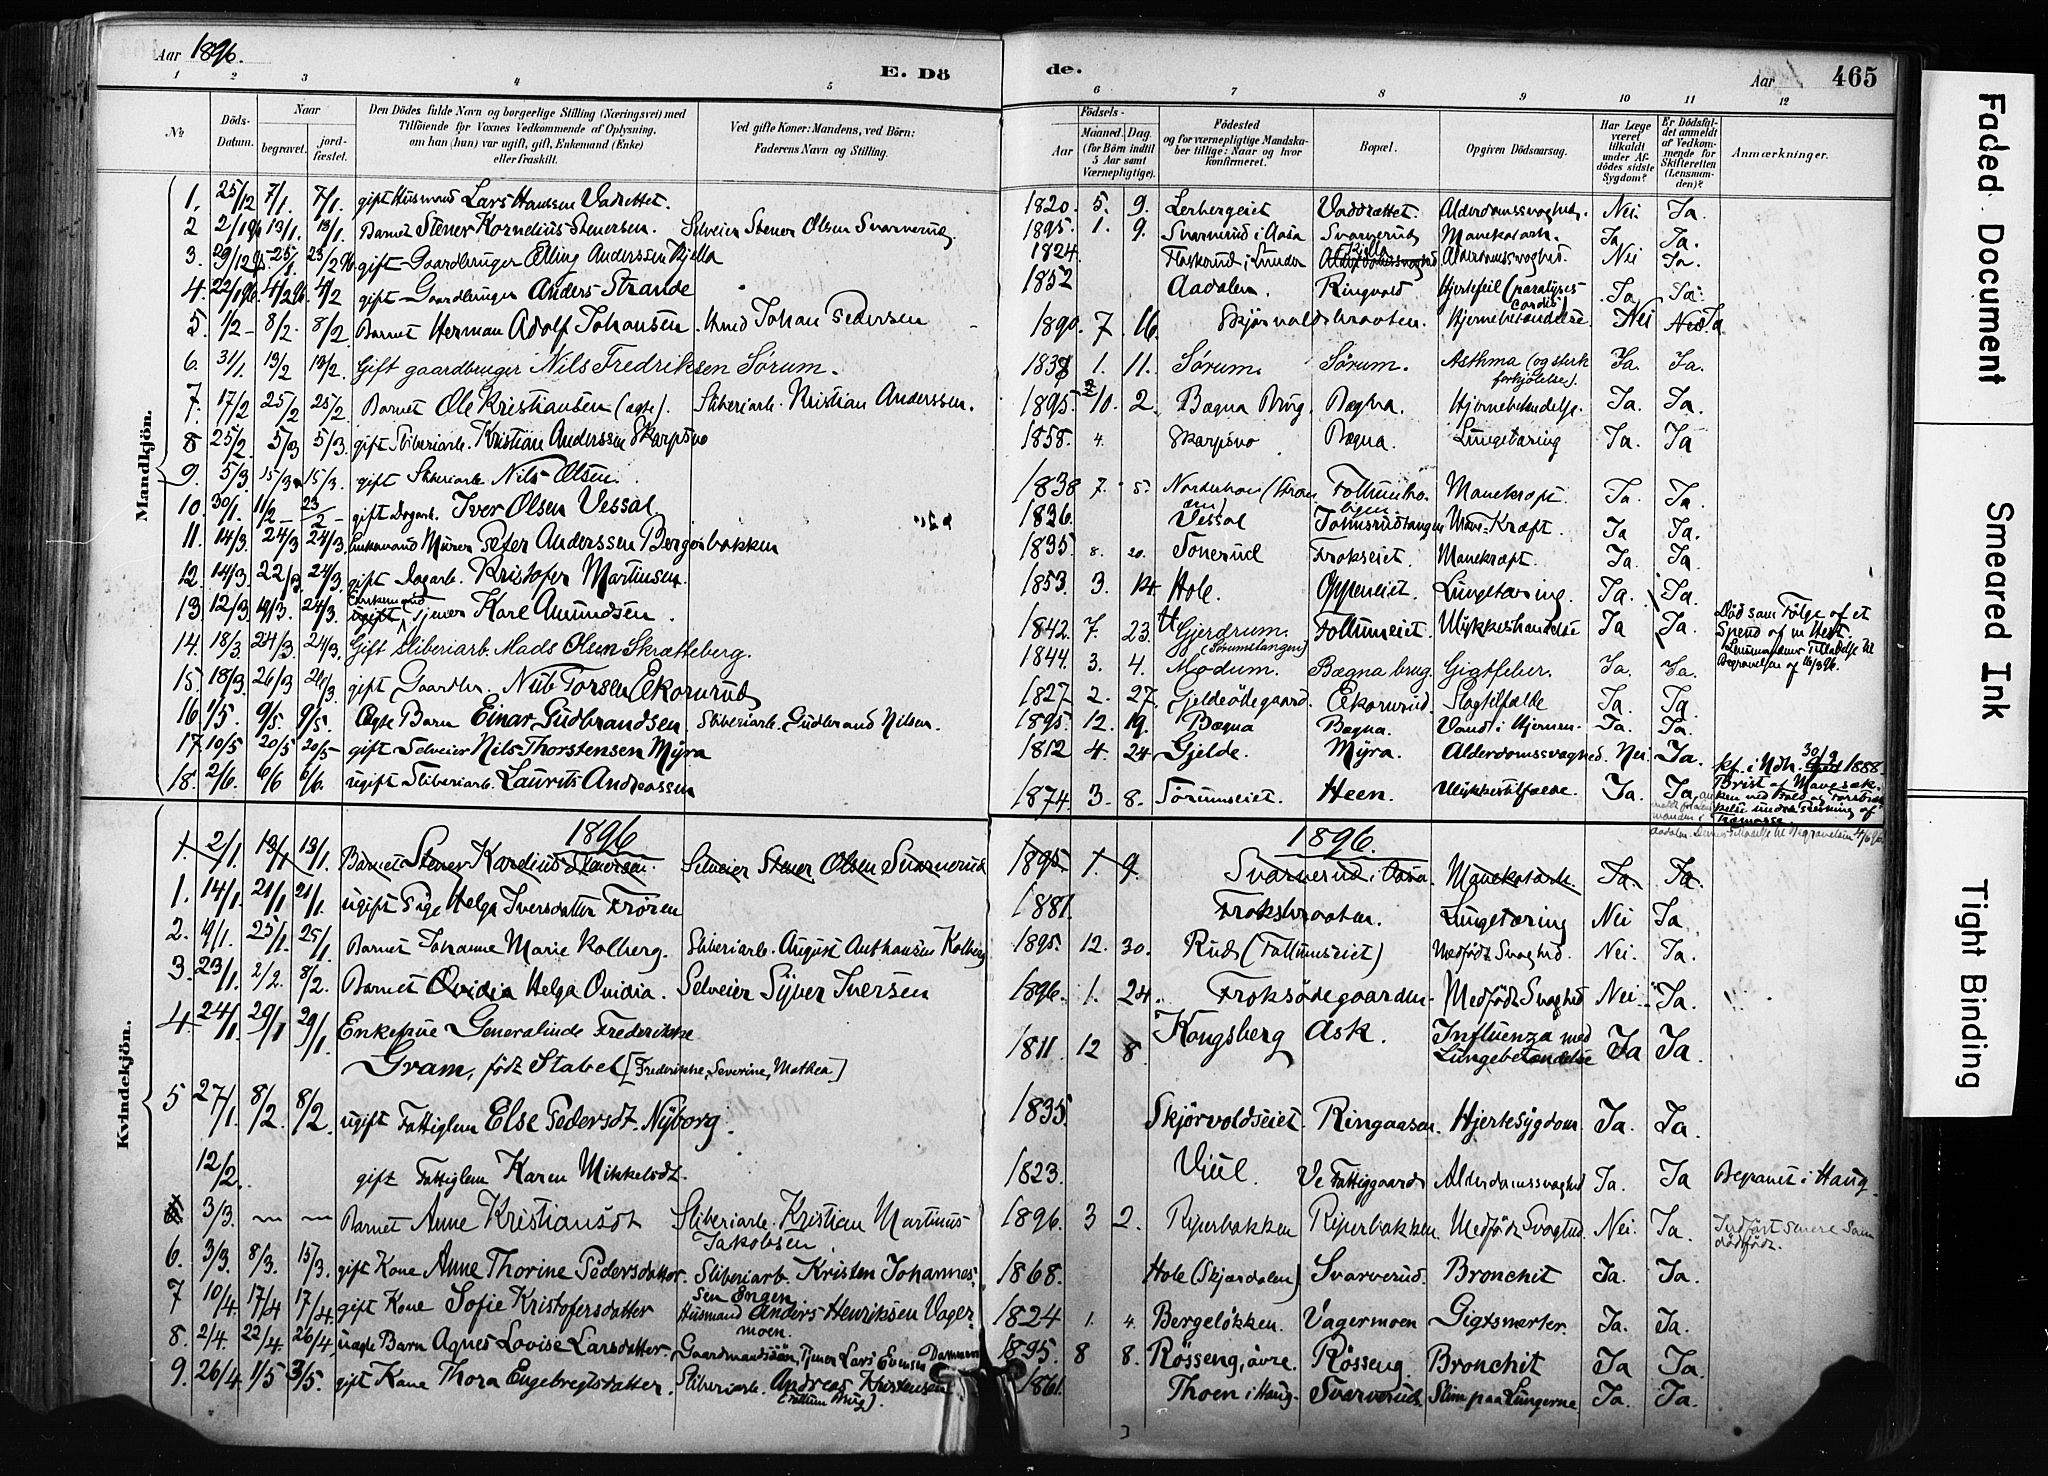 Aar 1896.
E. Dö de.
Aar 465
1 2 3 4 5 6 7 8 9 10 11 12
No
Döds-Datum.
Naar
begravet.
jord-fæstet.
Den Dödes fulde Navn og borgerlige Stilling (Næringsvei) med Tilföiende for Voxnes Vedkommende af Oplysning, om han (hun) var ugift, gift, Enkemand (Enke) eller fraskilt.
Ved gifte Koner: Mandens, ved Börn: Faderens Navn og Stilling.
Födsels-
Aar
Maaned. Dag.
(for Börn indtil 5 Aar samt Værnepligtige).
Födested og for værnepligtige Mandskaber tillige: Naar og hvor konfirmeret.
Bopæl.
Opgiven Dödsaarsag.
Har Læge været tilkaldt under Afdödes sidste Sygdom?
Er Dödsfaldet anmeldt af Vedkommende for Skifteretten (Lensmanden)?
Anmærkninger.
Mandkjön.
1. 25/12 7/1. 7/1. gift Husmand Lars Hansen Vadrettet. 1820. 5. 9. Lerbergeiet Vaddrættet. Alderdomssvaghed. Nei. Ja.
2 2/1 96 13/1. 13/1. Barnet Stener Kornelius Stenersen. Selveier Stener Olsen Svarverud 1895. 1. 9. Svarverud i Aasa Svarverud Mavekatarh. Ja. Ja.
3. 29/12 95 25/1 23/2 96. gift Gaardbruger Elling Anderssen Kjella 1824. Flaskerud i Lunder Kjella Alderdomssvaghed. Nei Ja.
4. 22/1 96. 4/2 96. 4/2 gift Gaardbruger Anders Strande 1852 Aadalen. Ringvold Hjertefeil (paralysis cordis) Ja Ja.
5. 1/2 8/2. 8/2 Barnet Herman Adolf Johansen. Johan Pedersen 1890. 7. 16. Skjørvoldsbraaten. Hjernebetændelse. Nei Ja
6. 31/1. 13/2 13/2. Gift gaardbruger Nils Fredriksen Sørum. 1838 1. 11. Sørum. Sørum. Asthma (og sterk forkjølelse). Ja. Ja.
7. 17/2 25/2 25/2. Barnet Ole Kristiansen (ægte). Sliberiarb. Kristian Anderssen. 1895. 10. 2. Bægna Brug. Bægna. Hjernebetændelse. Ja. Ja.
8 25/2. 5/3 5/3. gift Sliberiarb. Kristian Anderssen Skarpsno 1858. 4. Skarpsno Bægna. Lungetæring Ja. Ja
9. 5/3. 15/3 15/3. gift Sliberiarb. Nils Olsen. 1838 7. 5. Norderhov Follum Mavekræft. Ja. Ja.
10. 30/1. 11/2 23/2 gift Dagarb. Iver Olsen Vessal. 1826. Vessal Tolmsrudtangen Mave-Kræft. Ja Ja.
11. 14/3. 24/3 24/3. Enkemand Murer Peter Anderssen Bergersbakken 1835. 8. 20. Tonerud Frokseiet. Mavekræft. Ja. Ja.
12. 14/3. 22/3 24/3. gift Dagarb. Kristofer Martinsen. 1853. 3. 14. Hole. Oppeneiet. Lungetæring. Ja. Ja.
13 12/3. 19/3. 24/3. Enkemand ugift Tjener Karl Amundsen. 1842. 7. 23. Gjerdrum. Follumeiet. Ulykkeshændelse Ja Ja. Død som Følge af et Spend af en Hest. Lensmandens Tilladelse til Begravelsen af 16/3 96.
14. 18/3. 24/3. 24/3. Gift Sliberiarb. Mads Olsen Skrætteberg. 1844. 3. 4. Modum. Bægna brug. Gigtfeber. Ja. Ja.
15. 18/3. 26/3 26/3. gift Gaardbr. Nils Torsen Ekornrud 1827 2. 27. Gjeldeödegaard. Ekornrud. Slagtilfælde Ja. Ja
16. 1/5. 9/5. 9/5. Ægte Barn Einar Gudbrandsen. Sliberiarb. Gudbrand Nilsen. 1895. 12. 19. Bægna Bægna. Vand i Hjernen. Ja. Ja.
17. 10/5 20/5 20/5 gift Selveier Nils Thorstensen Myra 1812 4. 24 Gjelde. Myra. Alderdomssvaghed. Nei. Ja.
18. 2/6. 6/6 6/6. ugift Sliberiarb. Laurits Andreassen 1874. 3. 8. Sørumseiet. Heen. Ulykkestilfælde. Ja. Ja. kf. i Ndh. 30/9 1888. Brist af Mavesækken ved Fald under Læsning af Træmasse.
Kvindekjön.
1896 1896.
1. 2/1. 13/1 13/1. Barnet Stener Kornelius Stenersen. Selveier Stener Olsen Svarverud 1895. 1. 9. Svarverud i Aasa. Mavekatarh. Ja. Ja.
1. 14/1 21/1 21/1. ugift Pige Helga Iversdatter Frøren 1881. Froksbraaten. Lungetæring Nei Ja.
2. 19/1. 25/1. 25/1 Barnet Johanne Marie Kolberg. Sliberiarb. August Anthonsen Kolberg 1895. 12. 30. Rud (Follumseiet) Medfødt Svaghed. Nei. Ja.
3. 23/1 2/2. 8/2. Barnet Ovidia Helga Ovidia. Selveier Syver Iversen 1896. 1. 24. Froksödegaarden. Medfødt Svaghed Nei Ja.
4. 24/1 29/1 29/1. Enkefrue Generalinde Frederikke Gram, født Stabel [Frederikke, Severine, Mathea] 1811 12 8. Kongsberg Ask. Influenza med Lungebetændelse Ja Ja.
5 27/1. 8/2. 8/2. ugift Fattiglem Else Pedersdt. Nyborg. 1835 Skjørvoldseiet. Ringaasen. Hjertesygdom. Ja. Ja.
12/2. gift Fattiglem Karen Mikkelsdt. 1823. Viul. Ve Fattiggaard Alderdomssvaghed Ja. Ja Begravet i Haug.
3/3. Barnet Anne Kristiansdt Sliberiarb. Kristian Martinus Jakobsen 1896. 3 2. Riperbakken Riperbakken Medfødt Svaghed Nei. Ja. Indført senere som dødfødt.
6. 3/3. 8/3. 15/3. gift Kone Anne Thorine Pedersdatter. Sliberiarb. Kristen Johannessen Engen 1868. Hole (Skjærdalen) Svarverud. Bronchit Ja. Ja.
7 10/4. 17/4 17/4. gift Kone Sofie Kristofersdatter Husmand Anders Henriksen Vagermoen. 1824 1. 4. Bergeløkken. Vagermoen Gigtsmerter. Ja. Ja.
8. 2/4. 22/4 26/4. uægte Barn Agnes Lovise Larsdatter. Gaardmandssön, Tjener Lars Evensen Dammen 1895. 8 8. Rösseng, övre. Rösseng. Bronchit Ja Ja.
9. 26/4 1/5 3/5. gift Kone Thora Engebregtsdatter. Sliberiarb. Andreas Kristensen (Follum Brug). 1861. Thoen i Haug. Svarverud. Slim paa Lungerne. Ja. Ja.
Faded Document
Smeared Ink
Tight Binding